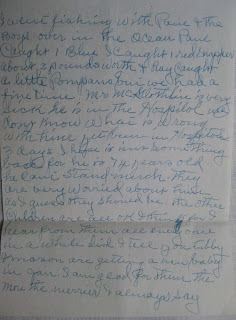 I wint fishing with Paul & the
Boys over in the Ocean Paul
Caught 1 Blue I Caught 1 red snapper
about 2 pounds worth & Ray Caught
a little Pompano, but we had a
fine time. Mrs Mc is very
sick he is in the Hospital
dont know what is wrong
with him yet been in Hospital
3 days I hope is isnt something
bad for he is 74 years old
he cant stand much they
are very woried about him
as I guess they should be. the other
Children are all ok I think for I
hear from them all every one
in a while did I tell you
are getting a new baby
in Jan I am glad for them the
more the merrier I always say